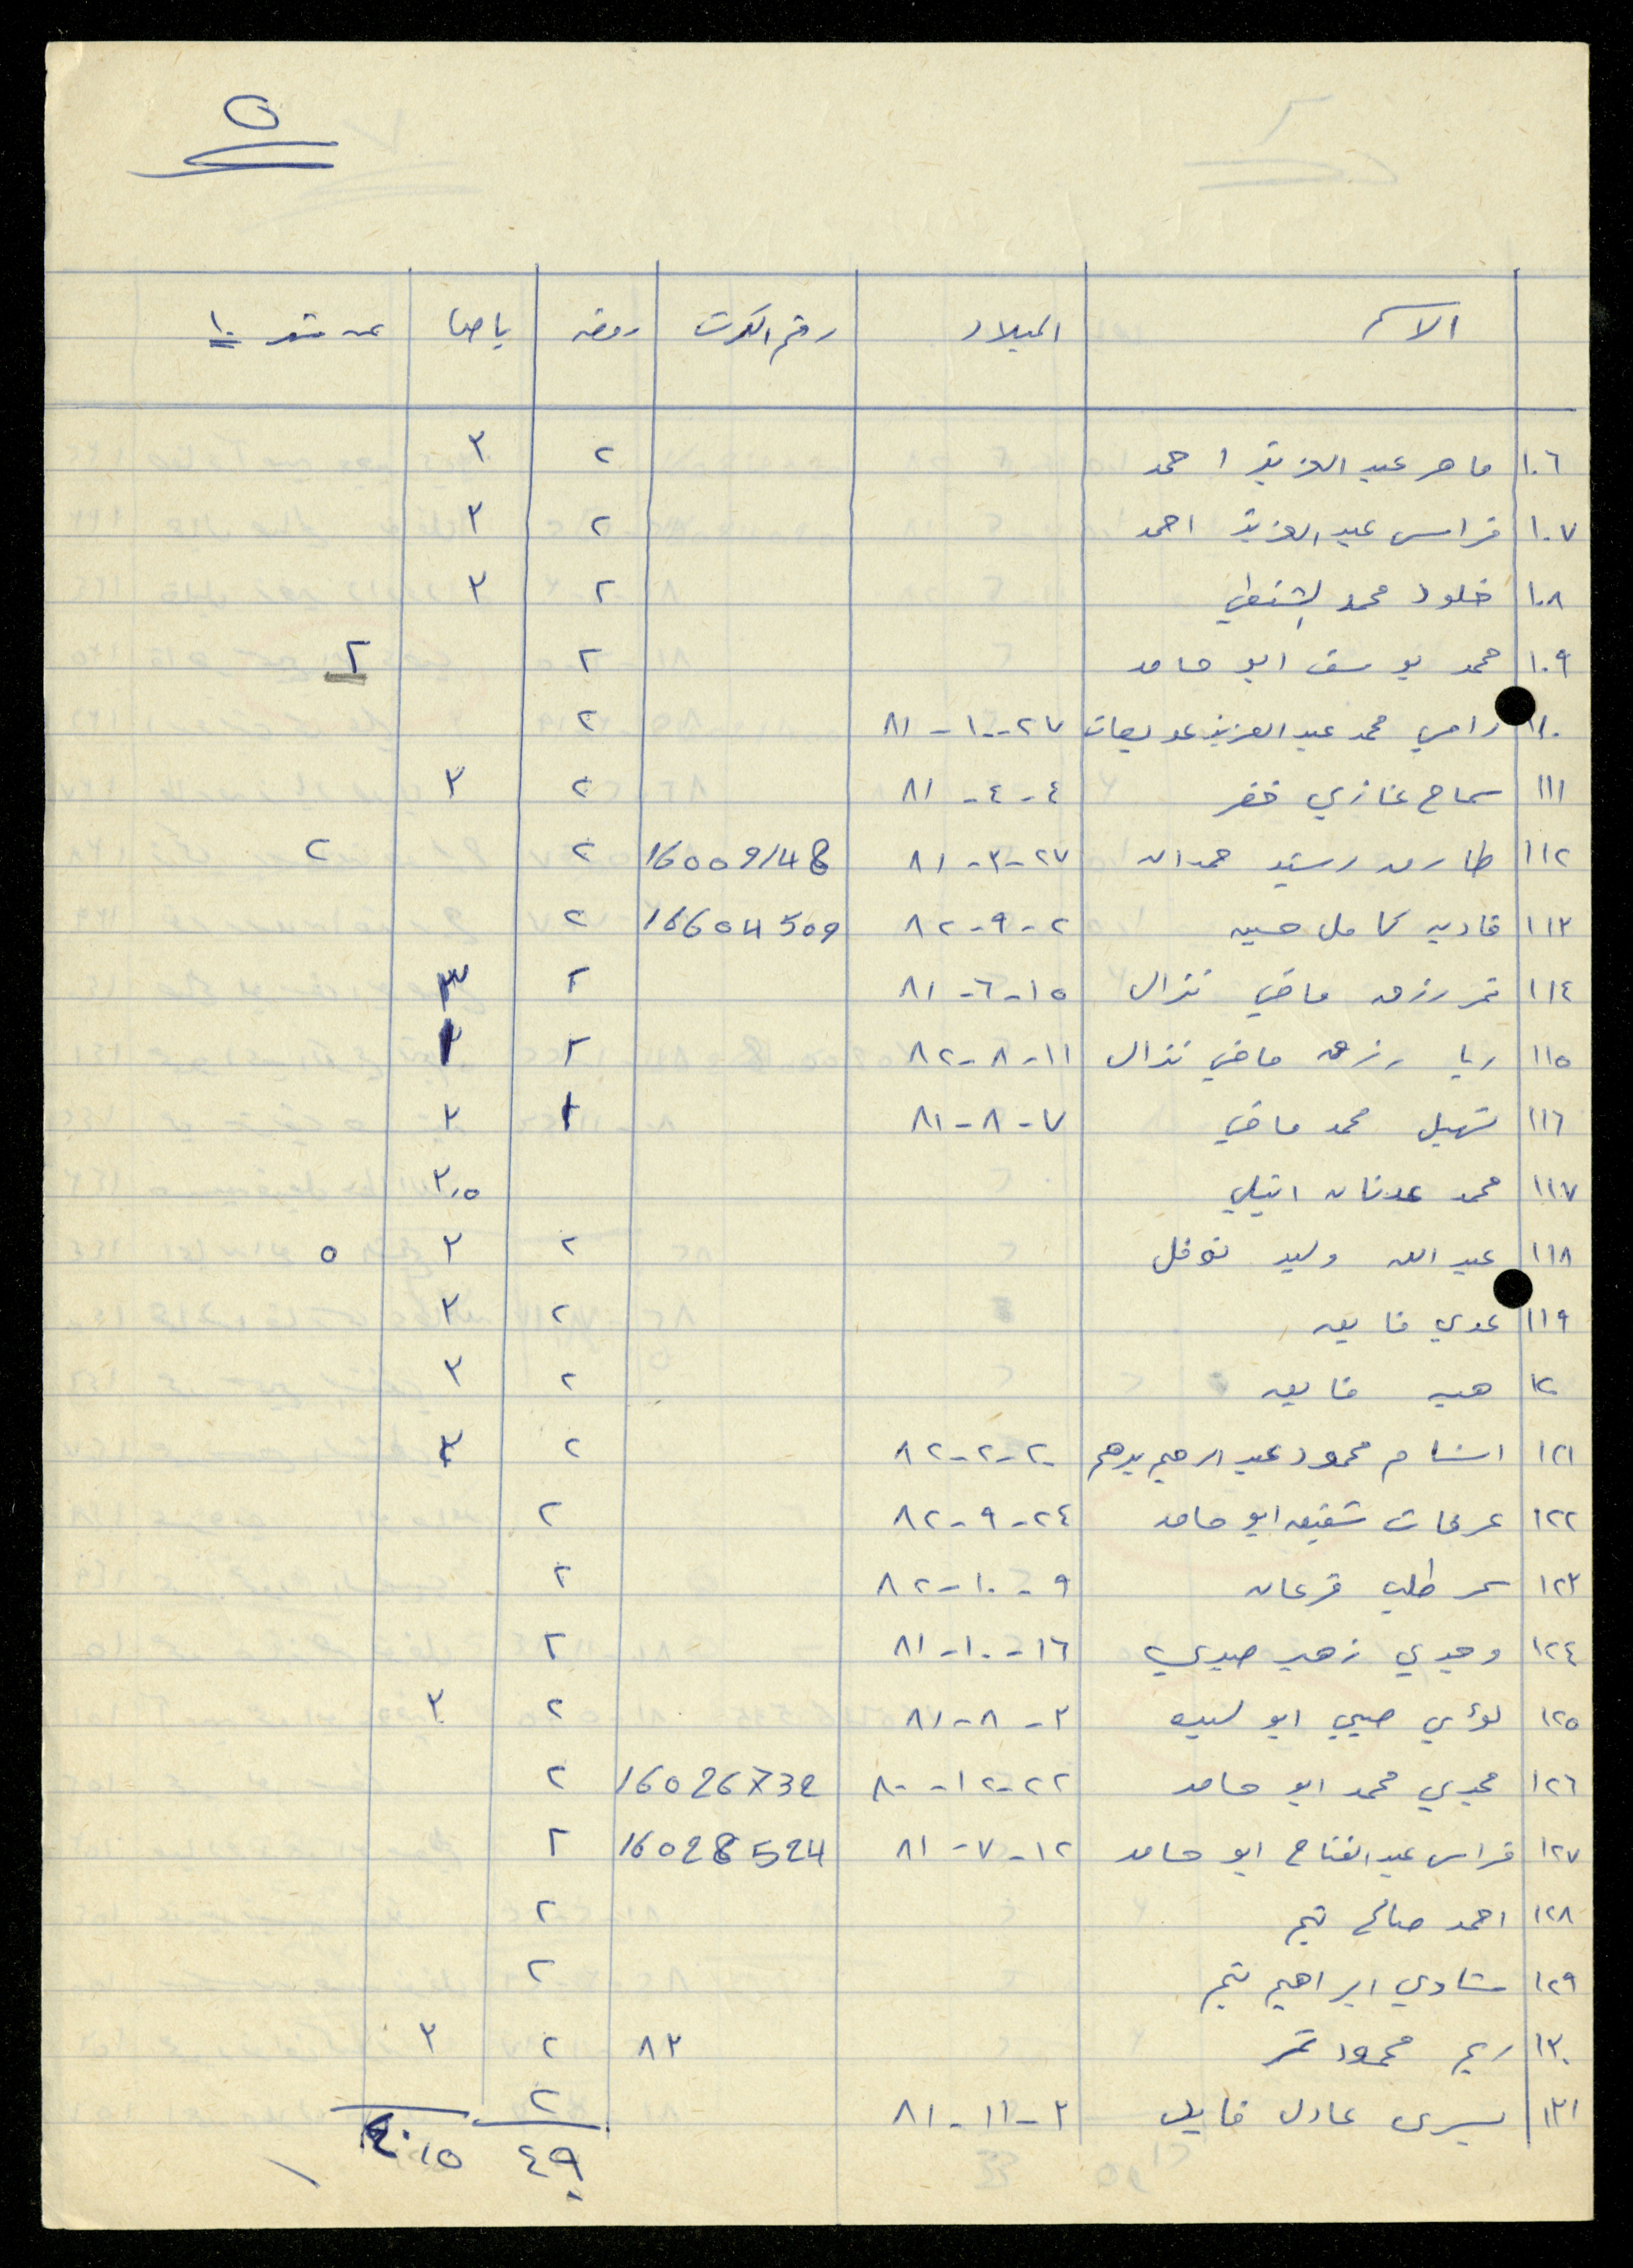 ٥
الاسم الميلاد رقم الكرت روضه باصا عن شهر ١٠
١٠٦ ماهر عبد العزيز احمد ٢ ٣
١٠٧ فراس عبد العزيز احمد ٢ ٣
١٠٨ خلود محمد الشنطي ٢ ٣
١٠٩ محمد يوسف ابو حامد ٢ ٢
١١٠ رامي محمد عبد العزيز عويصات ٢٧-١٠-٨١ ٢
١١١ سماح غازي خضر ٤-٤-٨١ ٢ ٣
١١٢ طارق رشيد حمدان ٢٧-٣-٨١ 16009148 ٢ ٢
١١٣ فاديه كامل حسين ٢-٩-٨٢ 16604509 ٢
١١٤ قمر رزق ماضي نزال ١٥-٦-٨١ ٢ ٣
١١٥ ربا رزق ماضي نزال ١١-٨-٨٢ ٢
١١٦ نهيل محمد ماضي ٧-٨-٨١ ٣
١١٧ محمد عدنان ٣,٥
١١٨ عبد الله وليد نوفل ٢ ٣ ٥
١١٩ عدي فايق ٢ ٣
١٢٠ هبه فايق ٢ ٣
١٢١ محمود عبد الرحيم برهم ٢٠-٢-٨٢ ٢ ٣
١٢٢ عرفات شفيق ابو حامد ٢٤-٩-٨٢ ٢
١٢٣ سمر طلب قرعان ٩-١٠-٨٢ ٢
١٢٤ وجدي زهير صبري ١٦-١٠-٨١ ٢
١٢٥ لؤي صبحي ابو لبده ٣-٨-٨١ ٢ ٣
١٢٦ مجدي محمد ابو حامد ٢٢-١٢-٨٠ 16026732 ٢
١٢٧ فراس عبد الفتاح ابو حامد ١٢-٧-٨١ 16028524 ٢
١٢٨ احمد صالح تيم ٢
١٢٩ شادي ابراهيم تيم ٢
١٣٠ ريم محمود نمر ٨٣ ٢ ٣
١٣١ يسرى عادل فايد ٣-١١-٨١ ٢
٤٩ ٤٠,٥